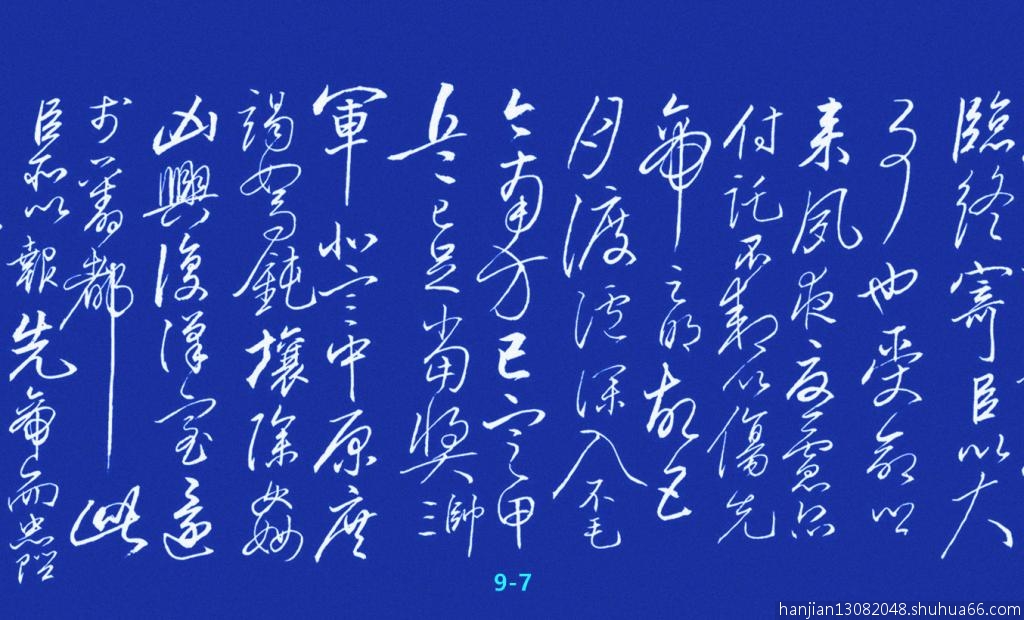 臨終寄臣以大
事也受命以
來夙夜憂慮恐
付託不效以傷先
帝之明故五
月渡瀘深入不毛
今南方已定甲
兵已足當獎帥三
軍北定中原庶
竭駑鈍攘除姦
凶興復漢室還
於舊都此
臣所以報先帝而忠陛
9-7
hanjian13082048.shuhua66.com